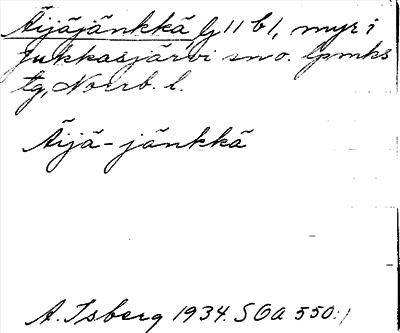 Äijäjänkkä Lj 11 b1, myr i
Jukkasjärvi sn o. lpmks
tg, Norrb. l.
Äijä-jänkkä
A. Isberg 1934. SOA 550:1